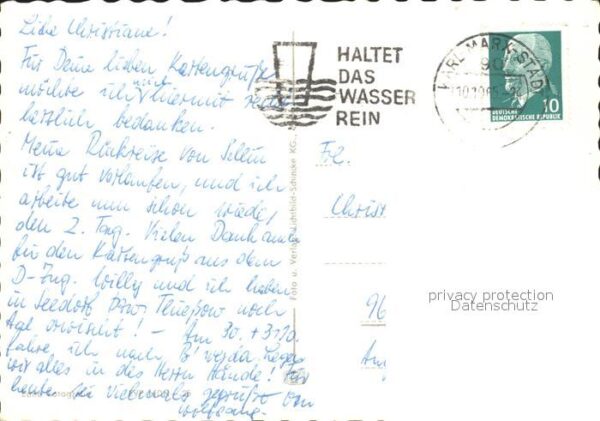 Liebe Christiane!
Für Deine lieben Kartengrüße
möchte ich mich hiermit recht
herzlich bedanken.
Meine Rückreise von Sellin
ist gut verlaufen, und ich
arbeite nun schon wieder
den 2. Tag. Vielen Dank auch
für den Kartengruß aus dem
D-Zug. Willy und ich haben
in Seedorf bzw. Thießow noch
Aal erwischt! - Am 30. + 31.10.
fahre ich nach
wir alles in des Herrn Hände! Für
heute sei vielmals gegrüßt von
Wolfgang.
HALTET
DAS
WASSER
REIN
KARL-MARX-STADT
90
10
DEUTSCHE
DEMOKRATISCHE REPUBLIK
Foto u. Verlag Lichtbild-Schincke KG.
Frl.
Christ
96
privacy protection
Datenschutz